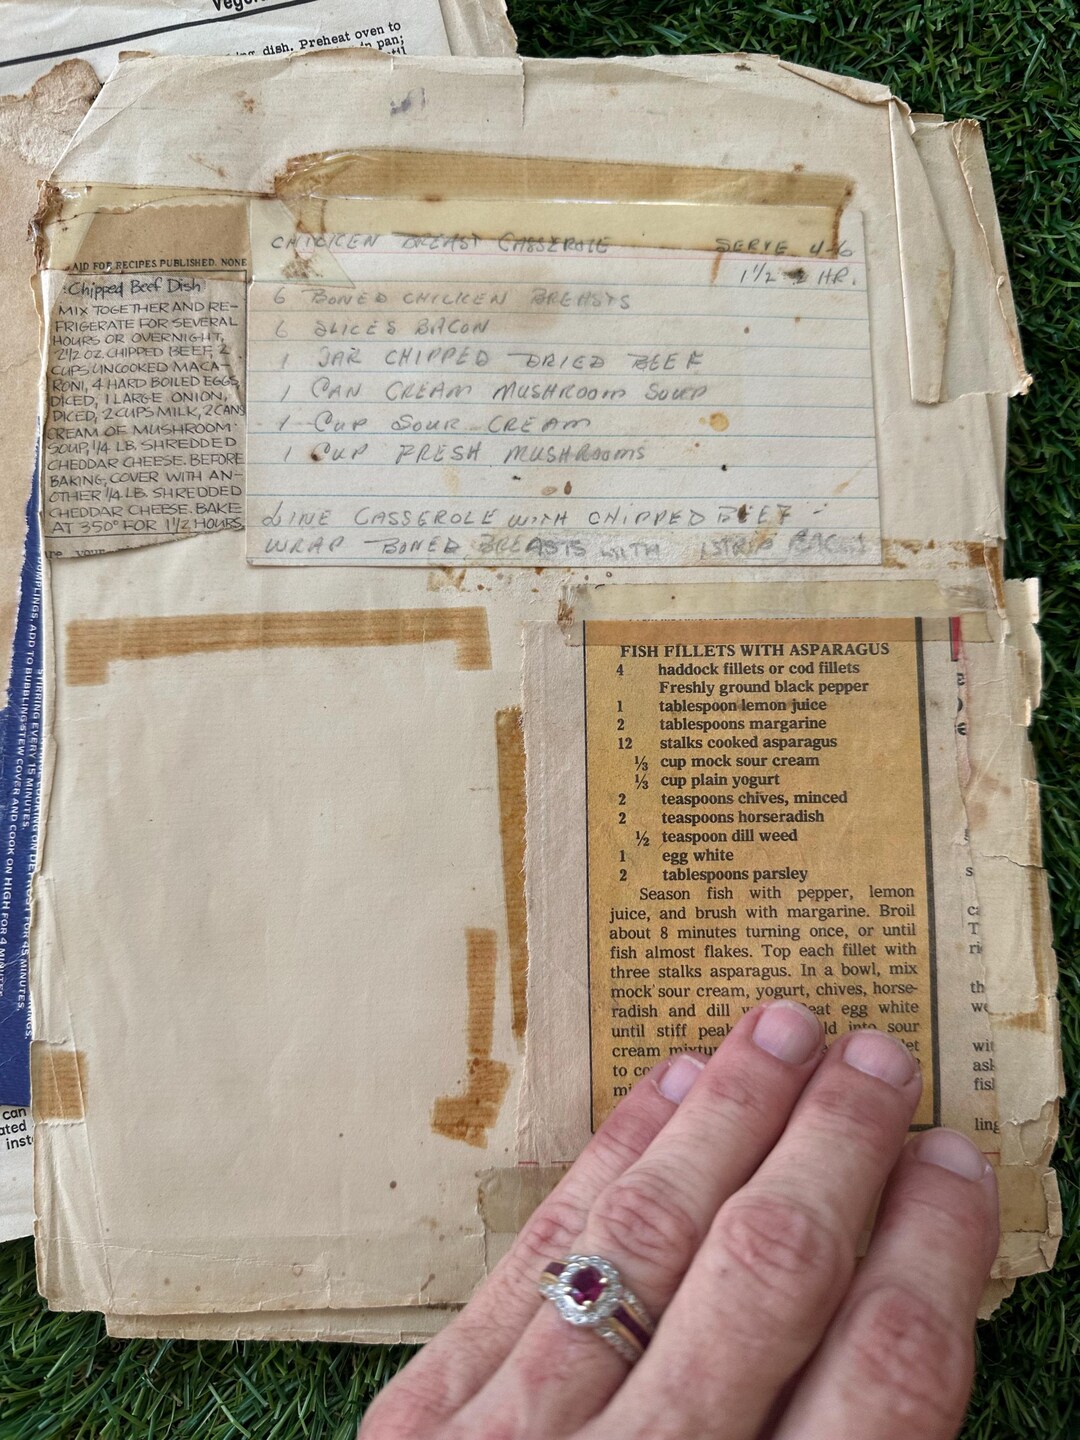 dish. Preheat oven to
pan;
AID FOR RECIPES PUBLISHED. NONE
Chipped Beef Dish
MIX TOGETHER AND RE-
FRIGERATE FOR SEVERAL
HOURS OR OVERNIGHT,
2 1/2 OZ. CHIPPED BEEF, 2
CUPS UNCOOKED MACA-
RONI, 4 HARD BOILED EGGS,
DICED, 1 LARGE ONION,
DICED, 2 CUPS MILK, 2 CANS
CREAM OF MUSHROOM
SOUP, 1/4 LB. SHREDDED
CHEDDAR CHEESE. BEFORE
BAKING, COVER WITH AN-
OTHER 1/4 LB. SHREDDED
CHEDDAR CHEESE. BAKE
AT 350° FOR 1 1/2 HOURS.
CHICKEN BREAST CASSEROLE SERVE 4-6
1 1/2 - 2 HR.
6 BONED CHICKEN BREASTS
6 SLICES BACON
1 JAR CHIPPED DRIED BEEF
1 CAN CREAM MUSHROOM SOUP
1 CUP SOUR CREAM
1 CUP FRESH MUSHROOMS
LINE CASSEROLE WITH CHIPPED BEEF -
WRAP BONED BREASTS WITH 1 STRIP BACON
FISH FILLETS WITH ASPARAGUS
4 haddock fillets or cod fillets
Freshly ground black pepper
1 tablespoon lemon juice
2 tablespoons margarine
12 stalks cooked asparagus
⅓ cup mock sour cream
⅓ cup plain yogurt
2 teaspoons chives, minced
2 teaspoons horseradish
½ teaspoon dill weed
1 egg white
2 tablespoons parsley
Season fish with pepper, lemon
juice, and brush with margarine. Broil
about 8 minutes turning once, or until
fish almost flakes. Top each fillet with
three stalks asparagus. In a bowl, mix
mock sour cream, yogurt, chives, horse-
radish and dill egg white
until stiff into sour
cream
to
STIRRING EVERY 15 MINUTES.
ADD TO BUBBLING STEW COVER AND COOK ON HIGH FOR 4 MINUTES.
FOR 45 MINUTES.
can